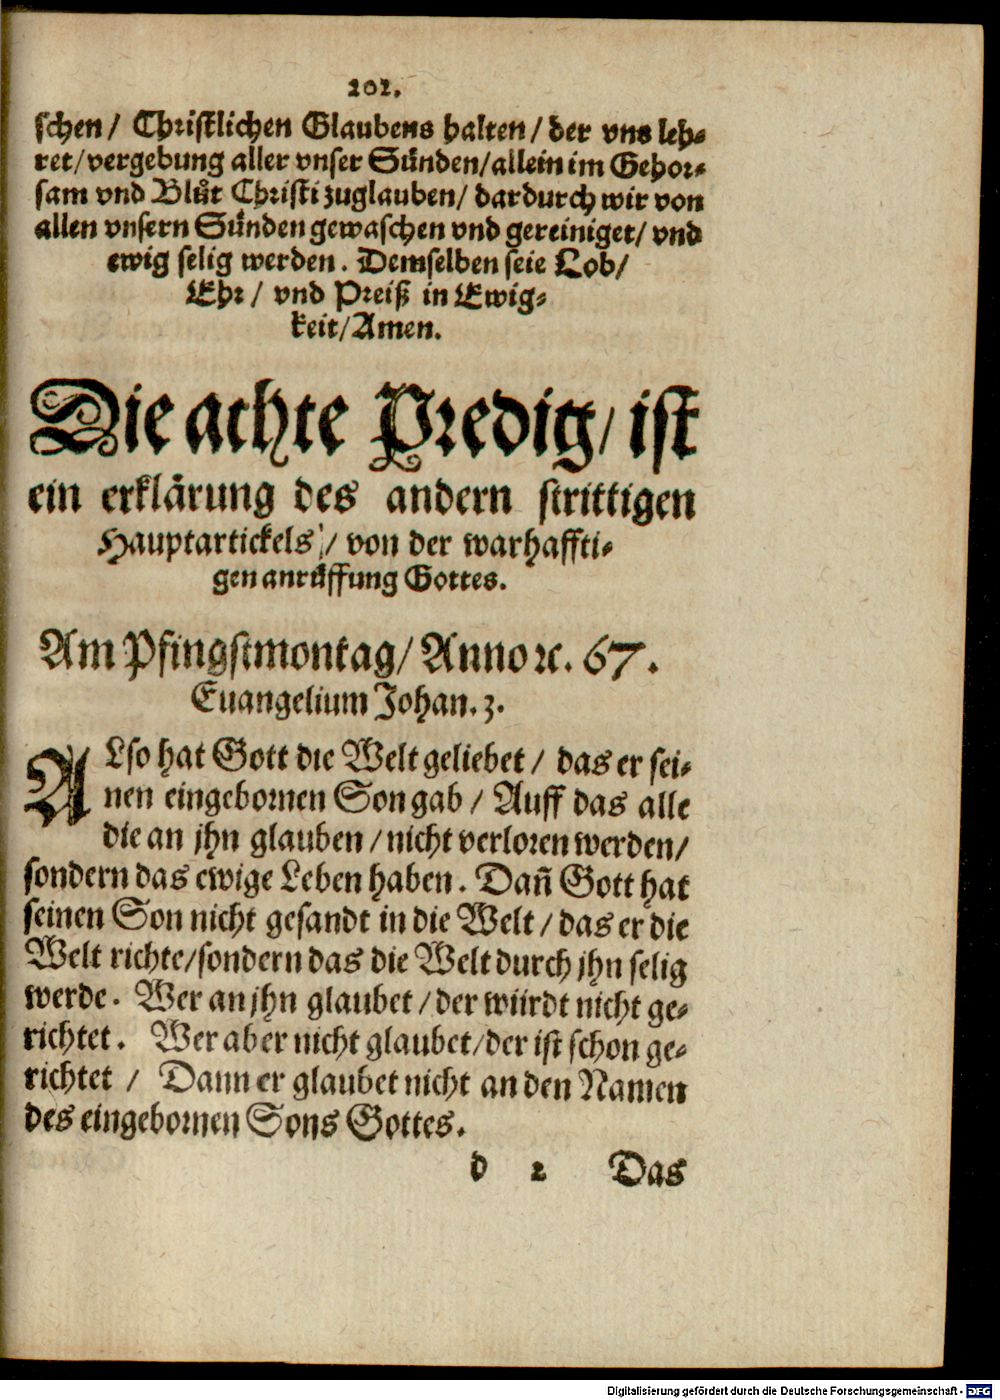 202.
schen/ Christlichen Glaubens halten/ der vns leh-
ret/vergebung aller vnser Sünden/allein im Gehor-
sam vnd Blůt Christi zuglauben/ dardurch wir von
allen vnsern Sünden gewaschen vnd gereiniget/ vnd
ewig selig werden. Demselben seie Lob/
Ehr/ vnd Preiß in Ewig-
keit/Amen.
Die achte Predig/ ist
ein erklärung des andern strittigen
Hauptartickels/ von der warhaffti-
gen anrůffung Gottes.
Am Pfingstmontag/ Anno ꝛc. 67.
Euangelium Johan. 3.
ALso hat Gott die Welt geliebet/ das er sei-
nen eingebornen Son gab/ Auff das alle
die an jhn glauben/nicht verloren werden/
sondern das ewige Leben haben. Dañ Gott hat
seinen Son nicht gesandt in die Welt/das er die
Welt richte/sondern das die Welt durch jhn selig
werde. Wer an jhn glaubet/der würdt nicht ge-
richtet. Wer aber nicht glaubet/der ist schon ge-
richtet/ Dann er glaubet nicht an den Namen
des eingebornen Sons Gottes.
d 2 Das
Digitalisierung gefördert durch die Deutsche Forschungsgemeinschaft - DFG